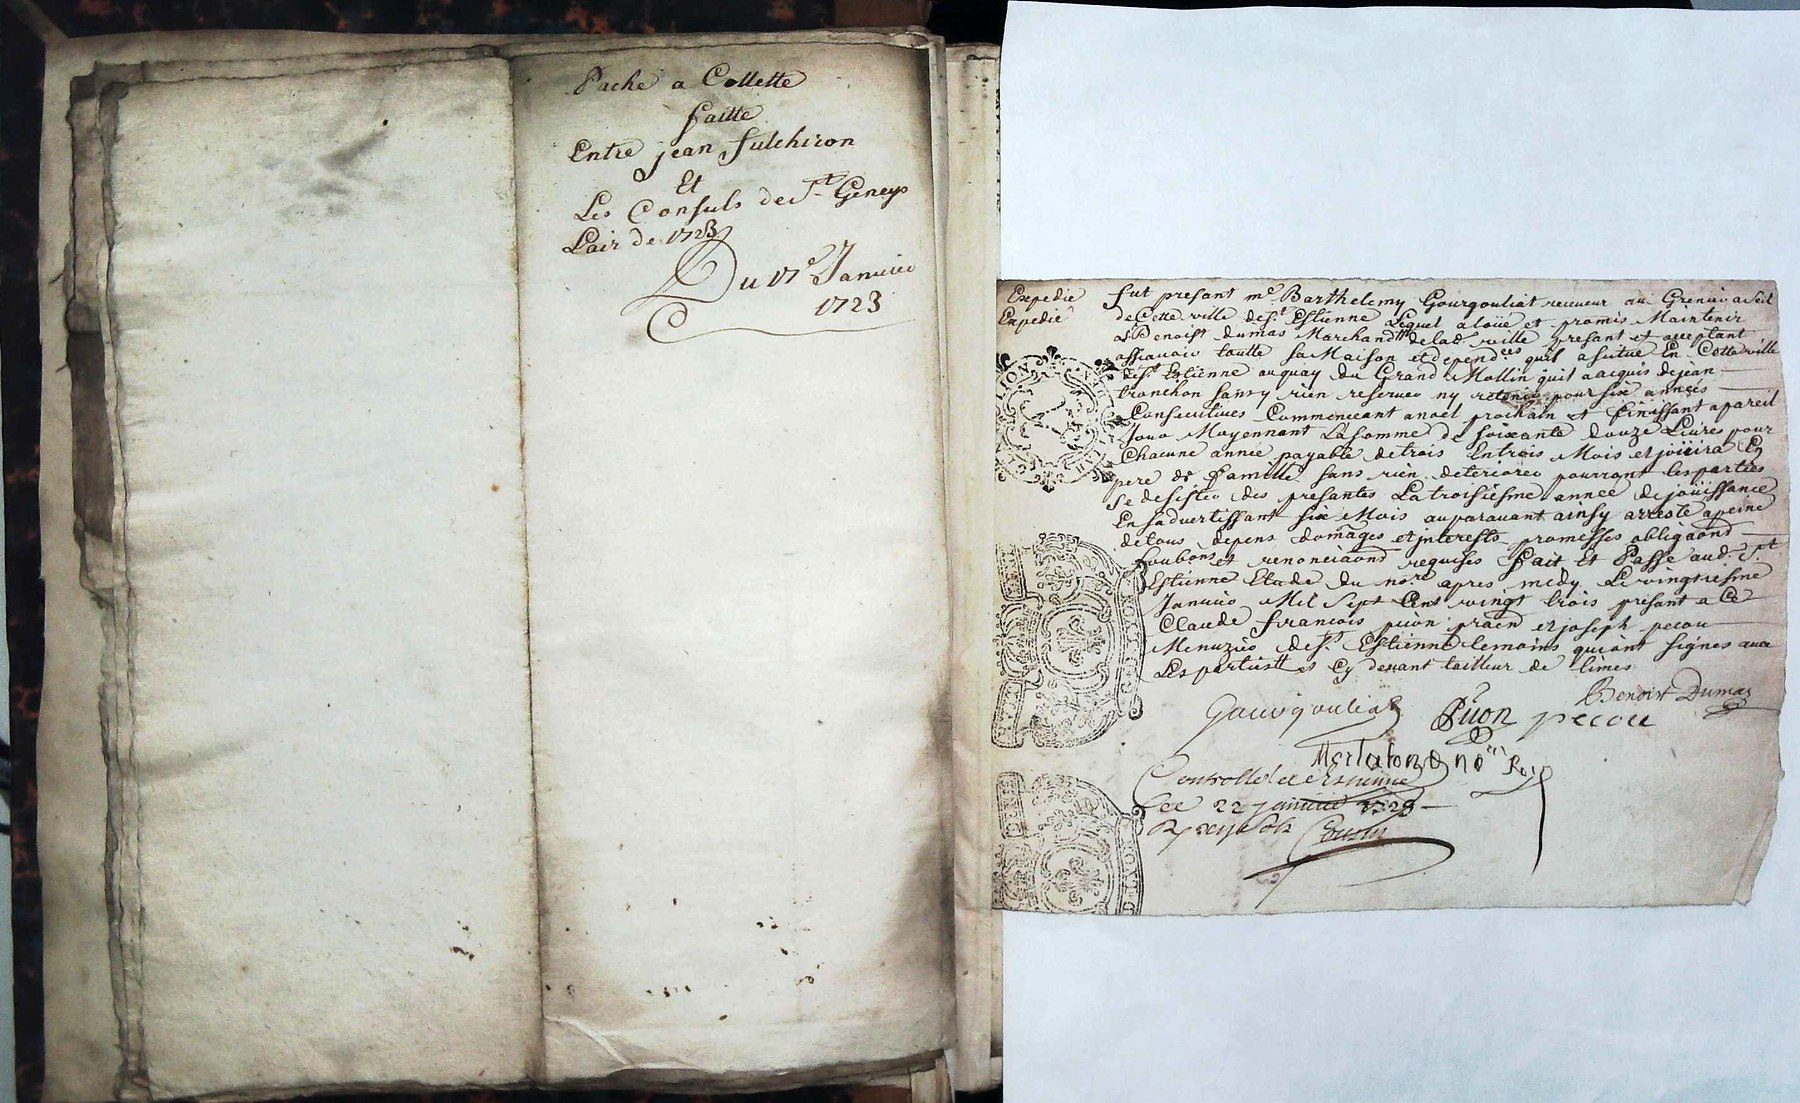 Pache a Collette
faitte
Entre jean fulchiron
Et
Les Consuls de St Geneys
Lair de 1723
Du 17e Januier
1723
Expedié
Expedié
fut presant me Barthelemy Gourgouliat receueur au Grenier a Sel
de Cette ville de St Estienne Lequel a loüé et promis Maintenir
a Sr Benoist dumas Marchand de lad ville presant et acceptant
assauoir toutte sa Maison et dependces quil a situué En Cette ville
de St Estienne au quay du Grand Mollin quil a acquis de jean
tronchon sans y rien reseruer ny retenir pour six années
Consecutiues Commenceant a noël prochain et finissant a pareil
Jour Moyennant La somme de soixante douze Liures pour
Chacune année payable de trois En trois Mois et joüira En
pere de famille sans rien deteriorer pourront les parties
se desister des presantes La troisiesme année de joüissance
En saduertissant six Mois auparauant ainsy arresté a peine
de tous depens domages et interests promesses obligaond
soubons et renonciaond requises fait Et Passé aud St
Estienne Etude du nore apres midy Le vingtiesme
Januier Mil Sept Cent vingt trois presant a Ce
Claude francois puon praën et joseph pecou
Menuzier de St Estienne temoins qui ont signés auec
Les parties et Cy deuant tailleur de limes
Benoist Dumas
Gourgouliat Puon pecou
Mertabond nore Roy
Controllé a St Estienne
Ce 22 januier 1723
R sols Cousin